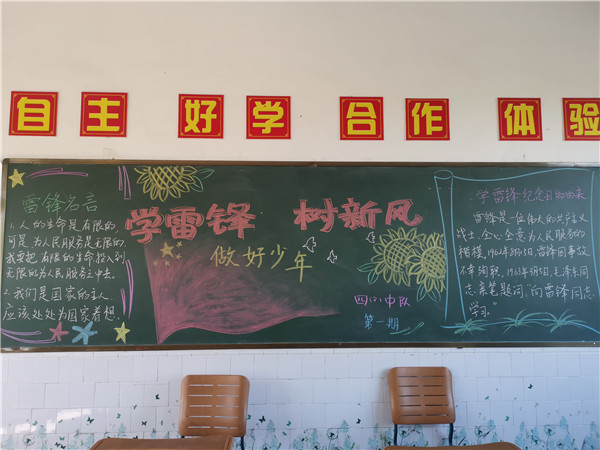 自主 好学 合作 体验
学雷锋 树新风
做好少年
四(1)中队
第一期
雷锋名言
1.人的生命是有限的,
可是,为人民服务是无限的,
我要把有限的生命投入到
无限的为人民服务之中去。
我们是国家的主人,
应该处处为国家着想。
学雷锋纪念日的由来
雷锋是一位伟大的共产主义
战士,全心全意为人民服务的
楷模,1962年8月15日,雷锋同事故
不幸殉职,1963年3月5日,毛泽东同
志亲笔题词:"向雷锋同志
学习。"